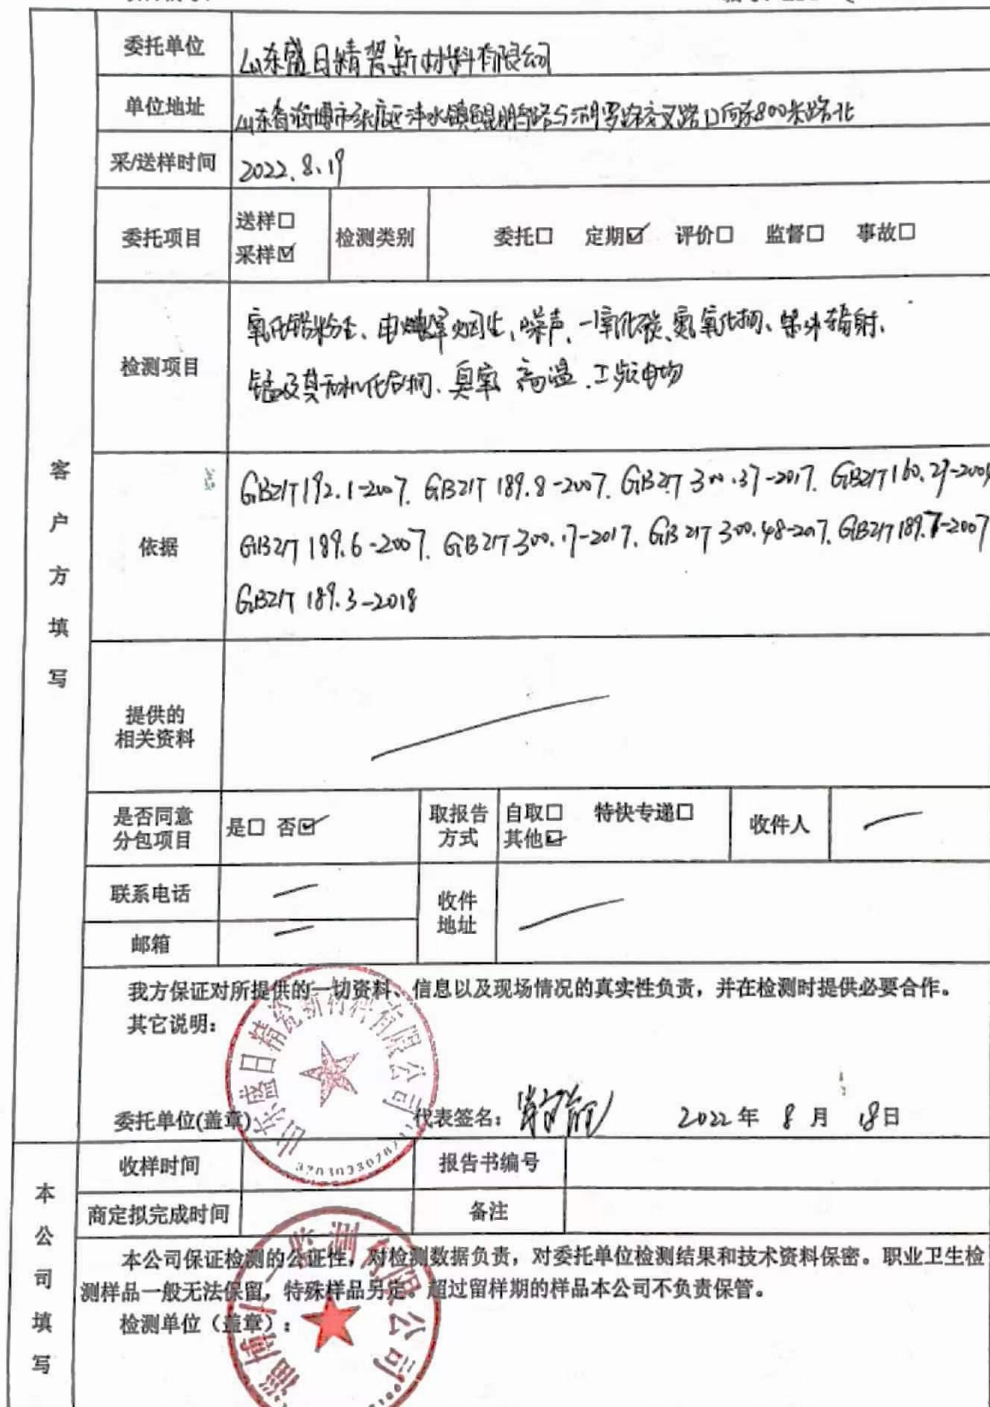 委托单位 山东盛日精瓷新材料有限公司
单位地址 山东省淄博市张店区沣水镇昆明路与洪罗路交叉路口向东800米路北
采/送样时间 2022.8.19
委托项目 送样☐ 采样☑ 检测类别 委托☐ 定期☑ 评价☐ 监督☐ 事故☐
检测项目 氧化铝粉尘、电焊烟尘、噪声、一氧化碳、氮氧化物、紫外辐射、
锰及其无机化合物、臭氧、高温、工频电场
客户方填写
依据 GBZ/T 192.1-2007. GBZ/T 189.8-2007. GBZ/T 300.37-2017. GBZ/T 160.29-2004
GBZ/T 189.6-2007. GBZ/T 300.17-2017. GBZ/T 300.48-2017. GBZ/T 189.7-2007
GBZ/T 189.3-2018
提供的
相关资料
是否同意
分包项目 是☐ 否☑ 取报告
方式 自取☐ 特快专递☐
其他☑ 收件人
联系电话 收件
地址
邮箱
我方保证对所提供的一切资料、信息以及现场情况的真实性负责，并在检测时提供必要合作。
其它说明：
山东盛日精瓷新材料有限公司
委托单位(盖章) 代表签名： 2022年 8月 18日
本公司填写
收样时间 报告书编号
商定拟完成时间 备注
本公司保证检测的公证性，对检测数据负责，对委托单位检测结果和技术资料保密。职业卫生检
测样品一般无法保留，特殊样品另定。超过留样期的样品本公司不负责保管。
检测单位（盖章）：